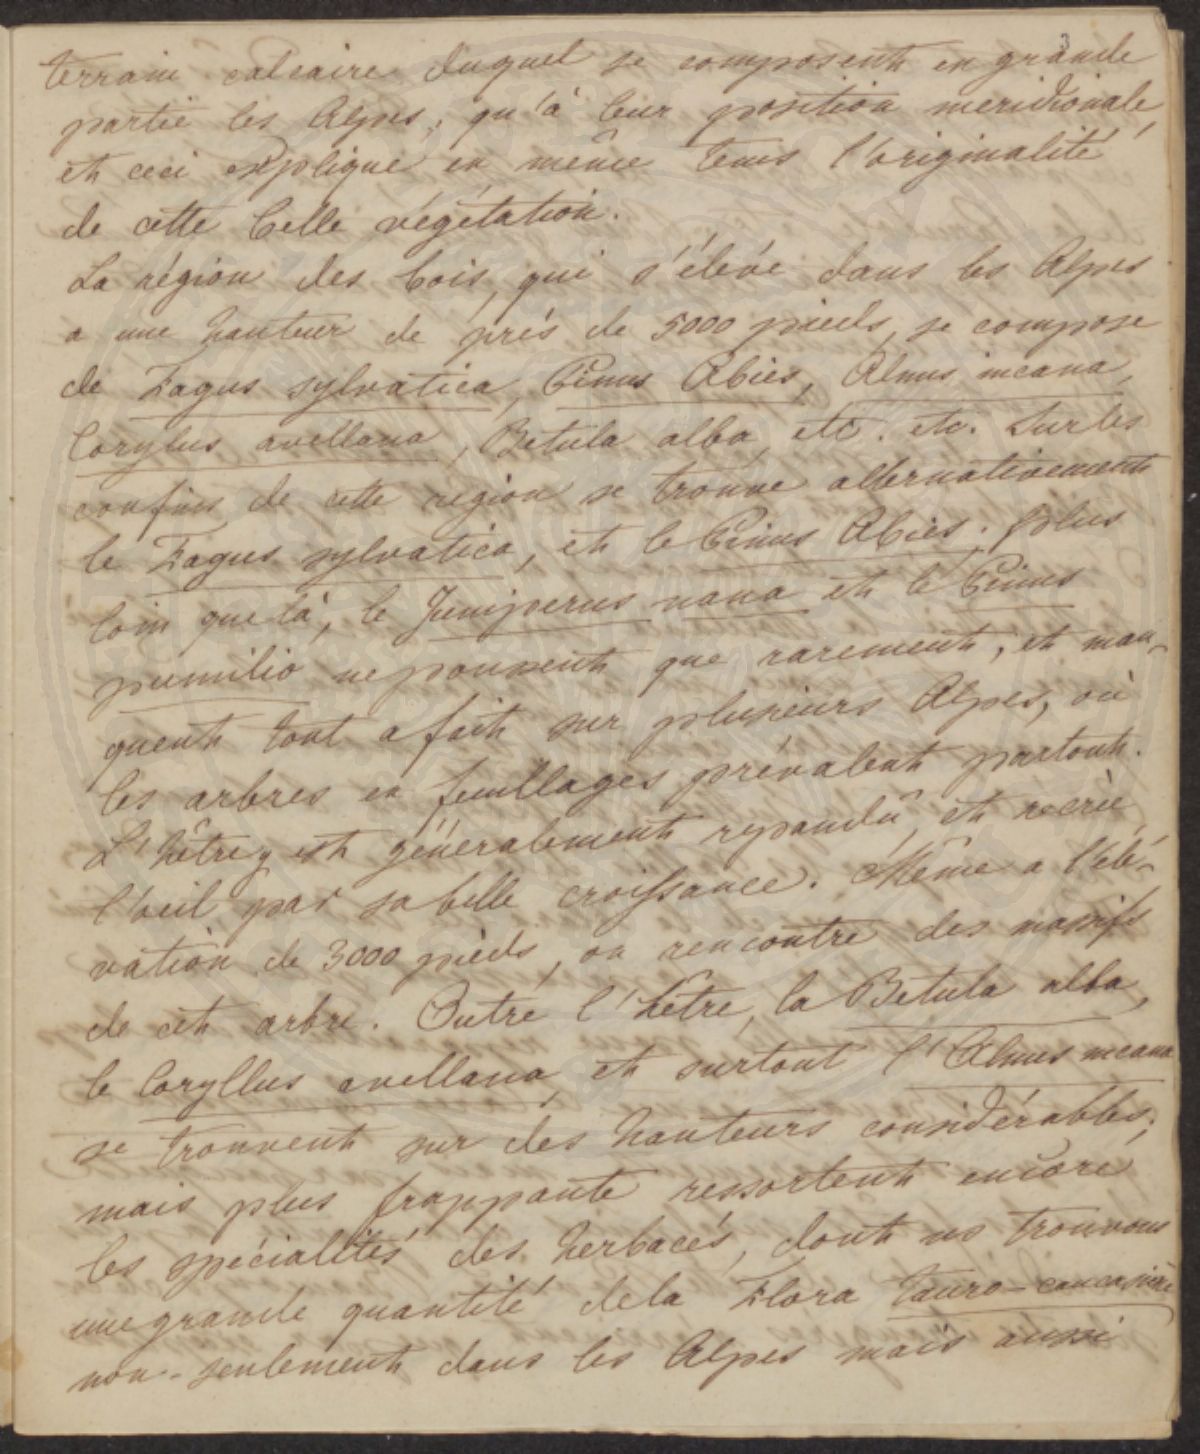 3
terrain calcaire duquel se composent en grande
partie les Alpes, qu'à leur position meridionale,
et ceci explique en même tems l'originalité
de cette belle végétation.
La région des bois, qui s'élève dans les Alpes
a une hauteur de près de 5000 pieds, se compose
de Fagus sylvatica, Pinus Abies, Alnus incana,
Corylus avellana, Betula alba, etc. etc. Sur les
confins de cette region se trouve alternativement
le Fagus sylvatica, et le Pinus Abies. plus
loin que là, le Juniperus nana et le Pinus
pumilio ne poussent que rarement, et man-
quent tout a fait sur plusieurs Alpes, où
les arbres en feuillages prévalent partout.
L'hêtre y est généralement repandû, et recrée
l'oeil par sa belle croissance. Même a l'élé-
vation de 3000 pieds, on rencontre des massifs
de cet arbre. Outre l'hêtre, la Betula alba,
le Coryllus avellana, et surtout l'Alnus incana
se trouvent sur des hauteurs considérables;
mais plus frappante ressortent encore
les spécialités des herbacés, dont ns trouvons
une grande quantité de la Flora tauro-caucasica
non-seulement dans les Alpes mais aussi